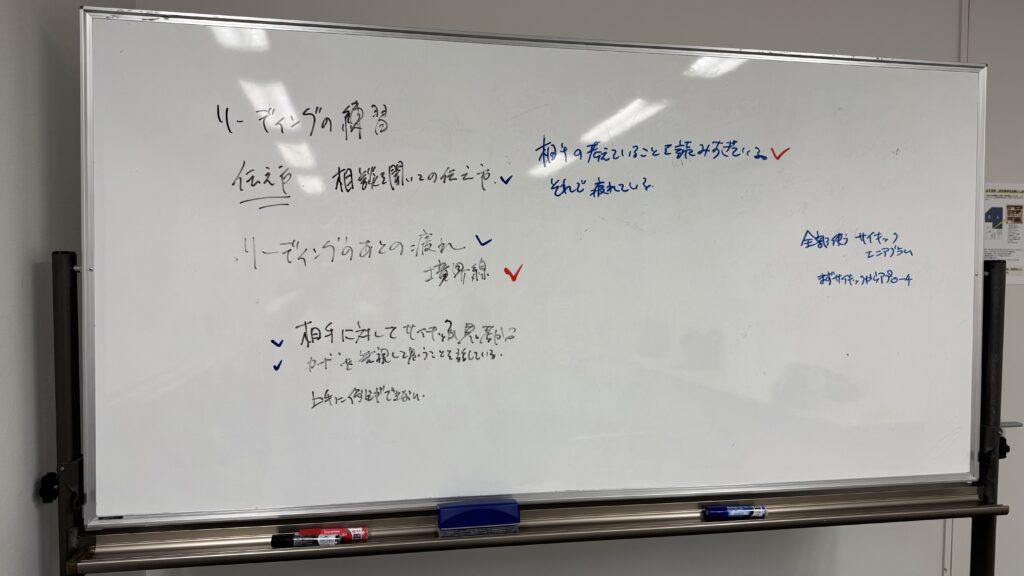 リーディングの練習
伝え方 相談を聞いての伝え方
相手の考えていることを読みすぎている
それで疲れている
リーディングのあとの疲れ
境界線
全部使う サイキック
エニアグラム
まずサイキックからアプローチ
相手に対してサイキック
カードを
して思うことを話している。
上手に
できない。